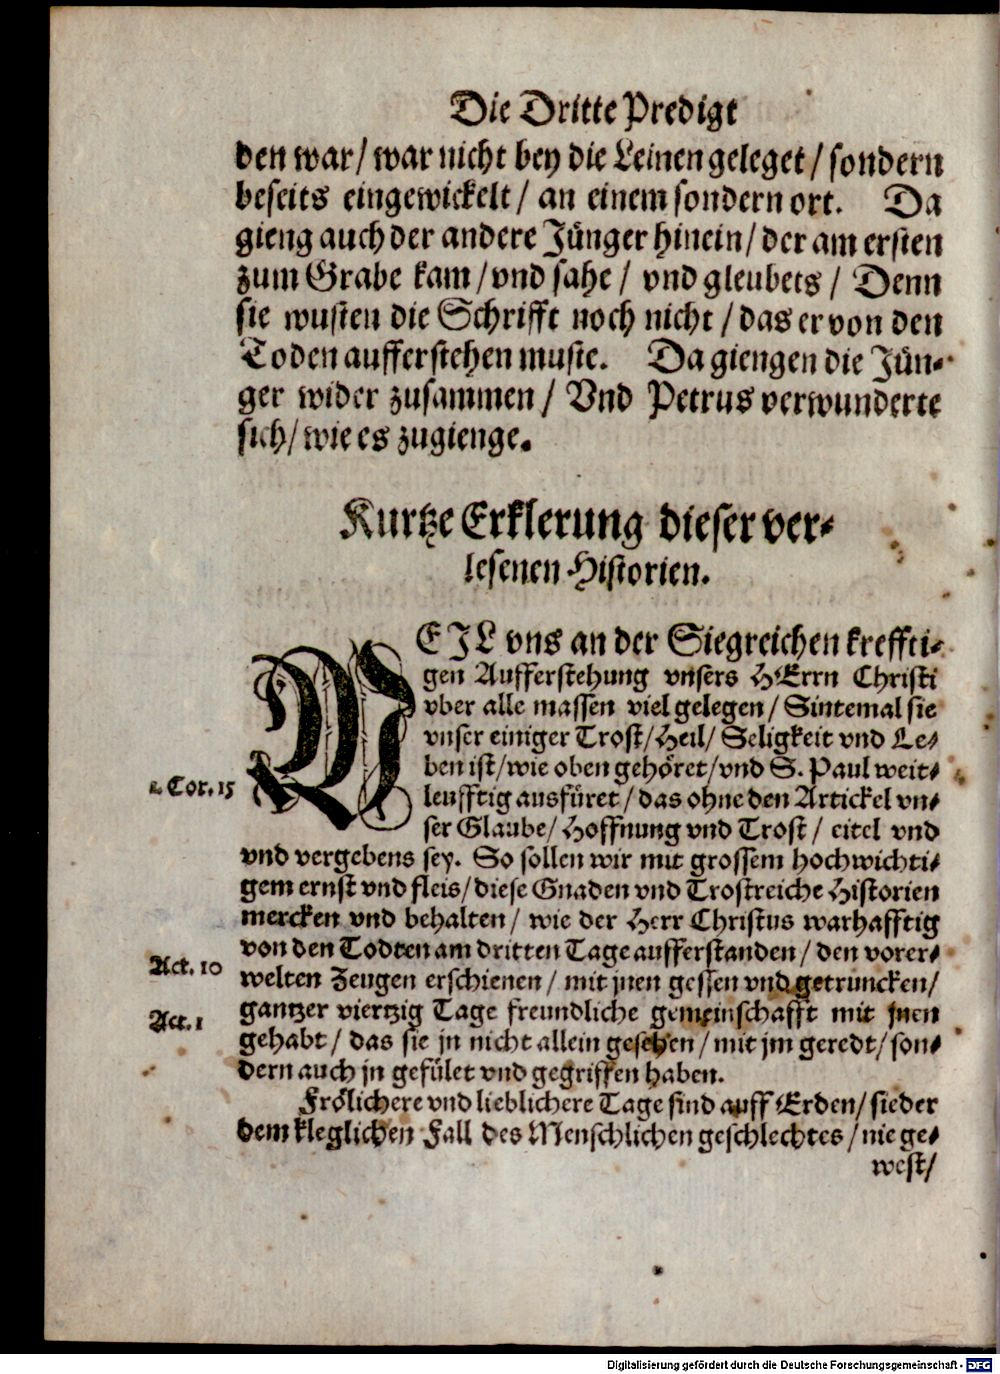 Die Dritte Predigt
den war/ war nicht bey die Leinen geleget/ sondern
beseits eingewickelt/ an einem sondern ort. Da
gieng auch der andere Jünger hinein/ der am ersten
zum Grabe kam/ vnd sahe/ vnd gleubets/ Denn
sie wusten die Schrifft noch nicht/ das er von den
Toden aufferstehen muste. Da giengen die Jün-
ger wider zusammen/ Vnd Petrus verwunderte
sich/ wie es zugienge.
Kurtze Erklerung dieser ver-
lesenen Historien.
WEJL vns an der Siegreichen kreffti-
gen Aufferstehung vnsers HErrn Christi
vber alle massen viel gelegen/ Sintemal sie
vnser einiger Trost/ Heil/ Seligkeit vnd Le-
ben ist/ wie oben gehöret/ vnd S. Paul weit-
1. Cor. 15
leufftig ausfüret/ das ohne den Artickel vn-
ser Glaube/ Hoffnung vnd Trost/ eitel vnd
vnd vergebens sey. So sollen wir mit grossem hochwichti-
gem ernst vnd fleis/ diese Gnaden vnd Trostreiche Historien
mercken vnd behalten/ wie der Herr Christus warhafftig
von den Todten am dritten Tage aufferstanden/ den vorer-
Act. 10
welten Zeugen erschienen/ mit jnen gessen vnd getruncken/
gantzer viertzig Tage freundliche gemeinschafft mit jnen
Act. 1
gehabt/ das sie jn nicht allein gesehen/ mit jm geredt/ son-
dern auch jn gefület vnd gegriffen haben.
Frölichere vnd lieblichere Tage sind auff Erden/ sieder
dem kleglichen Fall des Menschlichen geschlechtes/ nie ge-
west/
Digitalisierung gefördert durch die Deutsche Forschungsgemeinschaft - DFG